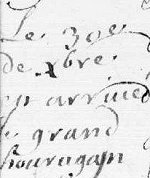 Le 30e
de xbre
en arrived
le grand
houragan